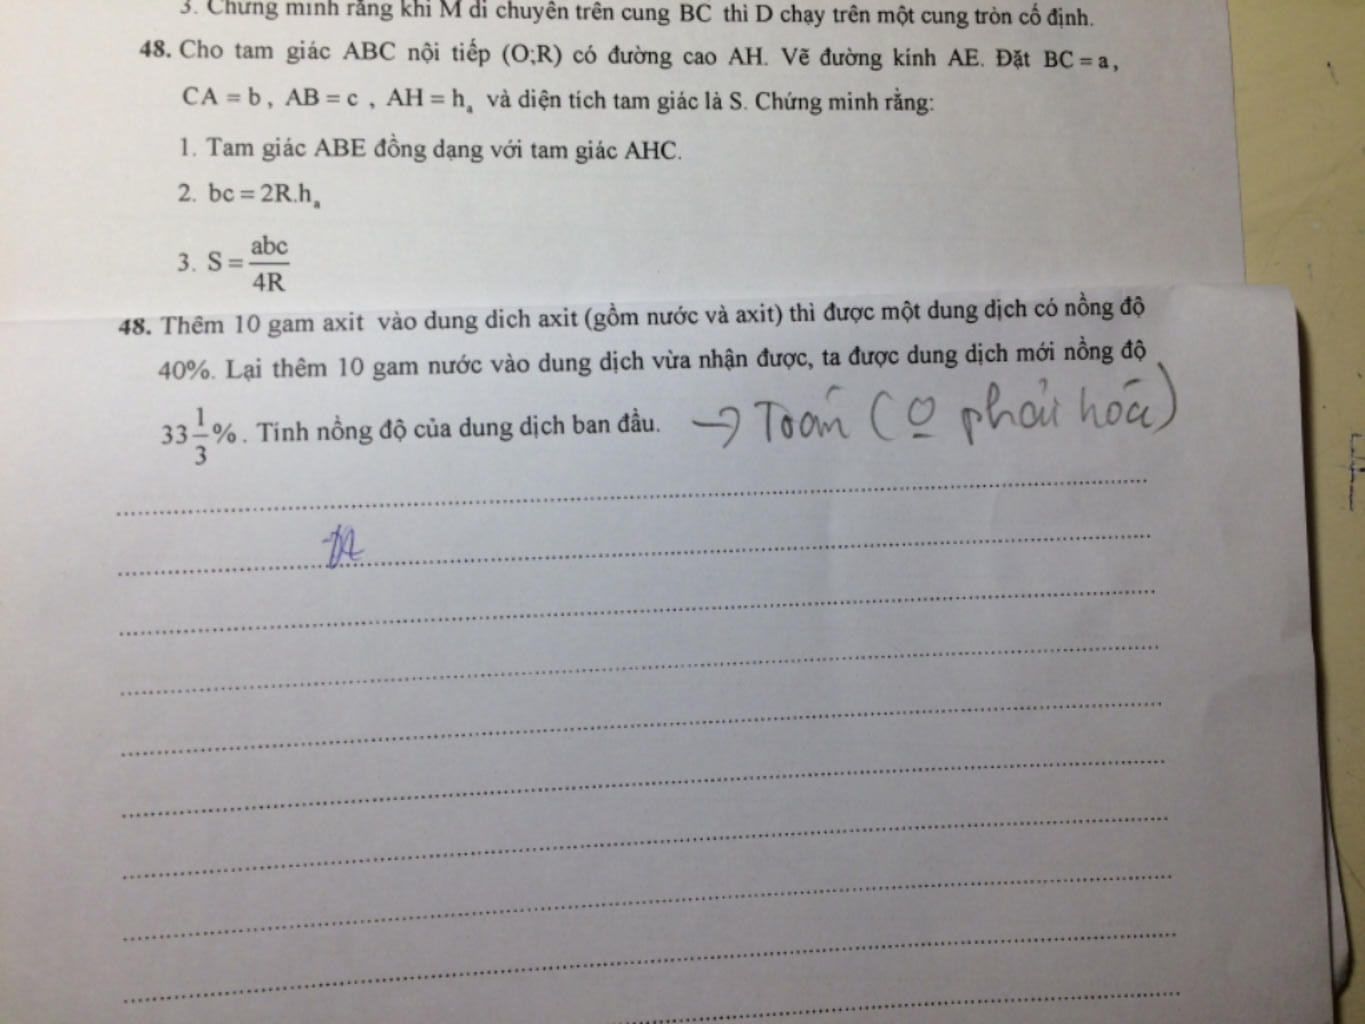 3. Chứng minh rằng khi M di chuyển trên cung BC thì D chạy trên một cung tròn cố định.
48. Cho tam giác ABC nội tiếp (O;R) có đường cao AH. Vẽ đường kính AE. Đặt BC = a,
CA = b, AB = c, AH = hₐ và diện tích tam giác là S. Chứng minh rằng:
1. Tam giác ABE đồng dạng với tam giác AHC.
2. bc = 2R.hₐ
3. S = abc/4R
48. Thêm 10 gam axit vào dung dich axit (gồm nước và axit) thì được một dung dịch có nồng độ
40%. Lại thêm 10 gam nước vào dung dịch vừa nhận được, ta được dung dịch mới nồng độ
33 1/3 %. Tính nồng độ của dung dịch ban đầu. → Toán (O phải hóa)